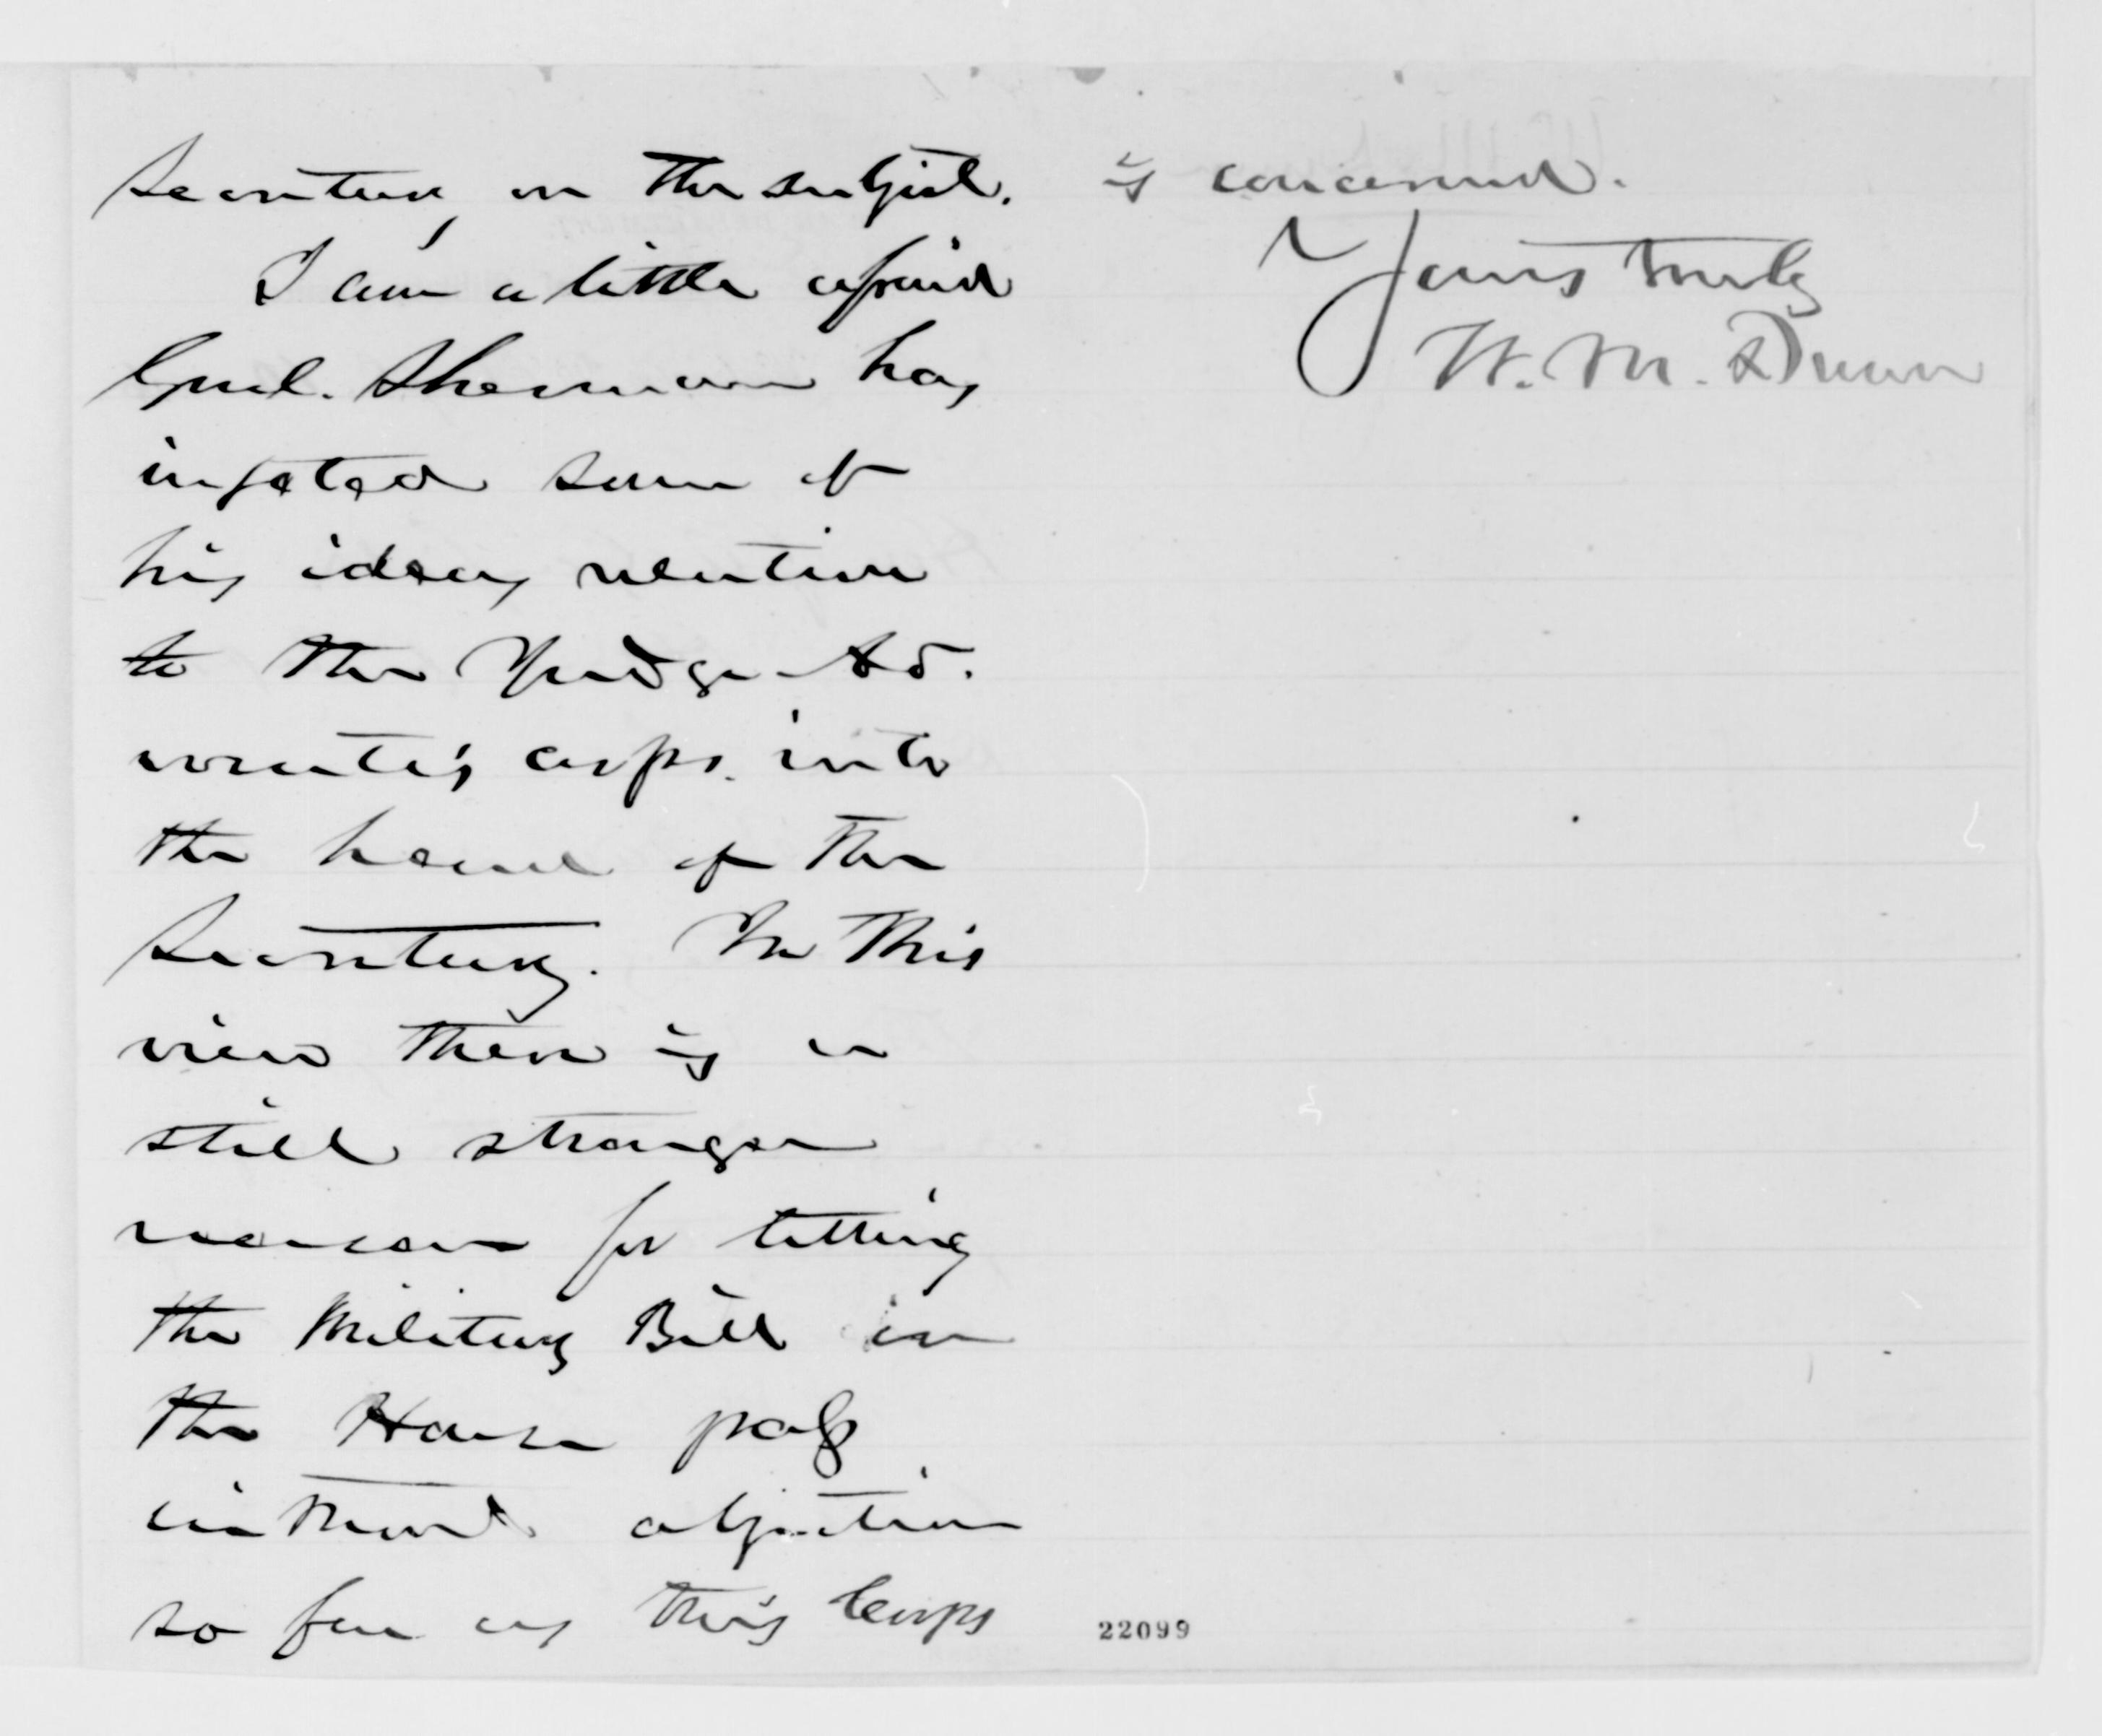 Secretary on the subject.
I am a little afraid
Genl. Sherman has
infected some of
his ideas relative
to the Judge-Ad.
vocate's corps. into
the head of the
Secretary. In this
view there is a
still stronger
reason for letting
the Military Bill in
the House pass
without objection
so far as this Corps
is concerned.
Yours truly
W. M. Dunn
22099